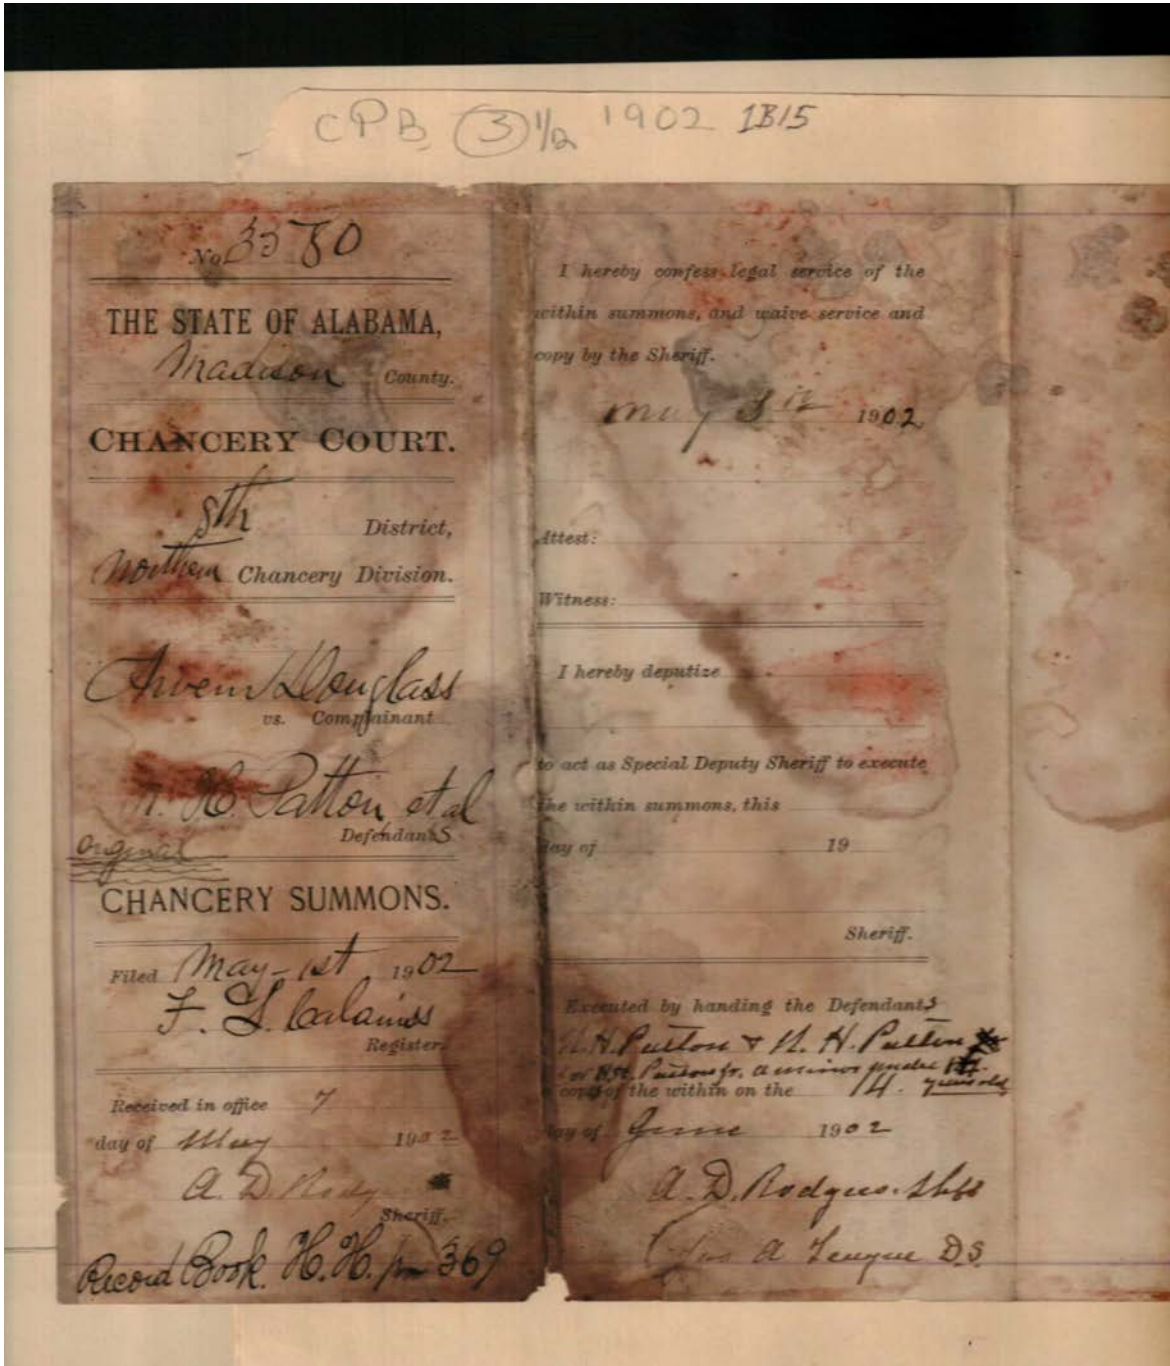 CPB (3) 1/2 1902 1B15
No. 3350
THE STATE OF ALABAMA,
Madison County.
CHANCERY COURT.
8th District,
Northern Chancery Division.
Douglass
vs. Complainant
H. Patton et al
Defendants
Original
CHANCERY SUMMONS.
Filed May-1st 1902
F. L.
Register.
Received in office 7
day of May 1902
A. D. Rodgers
Sheriff.
Record Book. H. H. 369
I hereby confess legal service of the
within summons, and waive service and
copy by the Sheriff.
May 1902
Attest:
Witness:
I hereby deputize
to act as Special Deputy Sheriff to execute
the within summons, this
day of 19
Sheriff.
Executed by handing the Defendants
H. Patton & H. Patton
Jr. a minor under 14 years old
a copy of the within on the
day of June 1902
A. D. Rodgers
A League D.S.